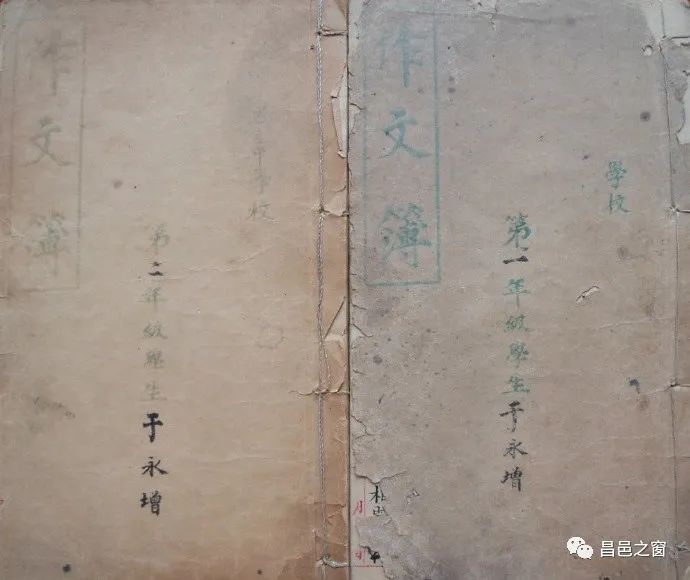 作文簿
學校
第二年級學生
于永增
作文簿
學校
第一年級學生
于永增
月
昌邑之窗